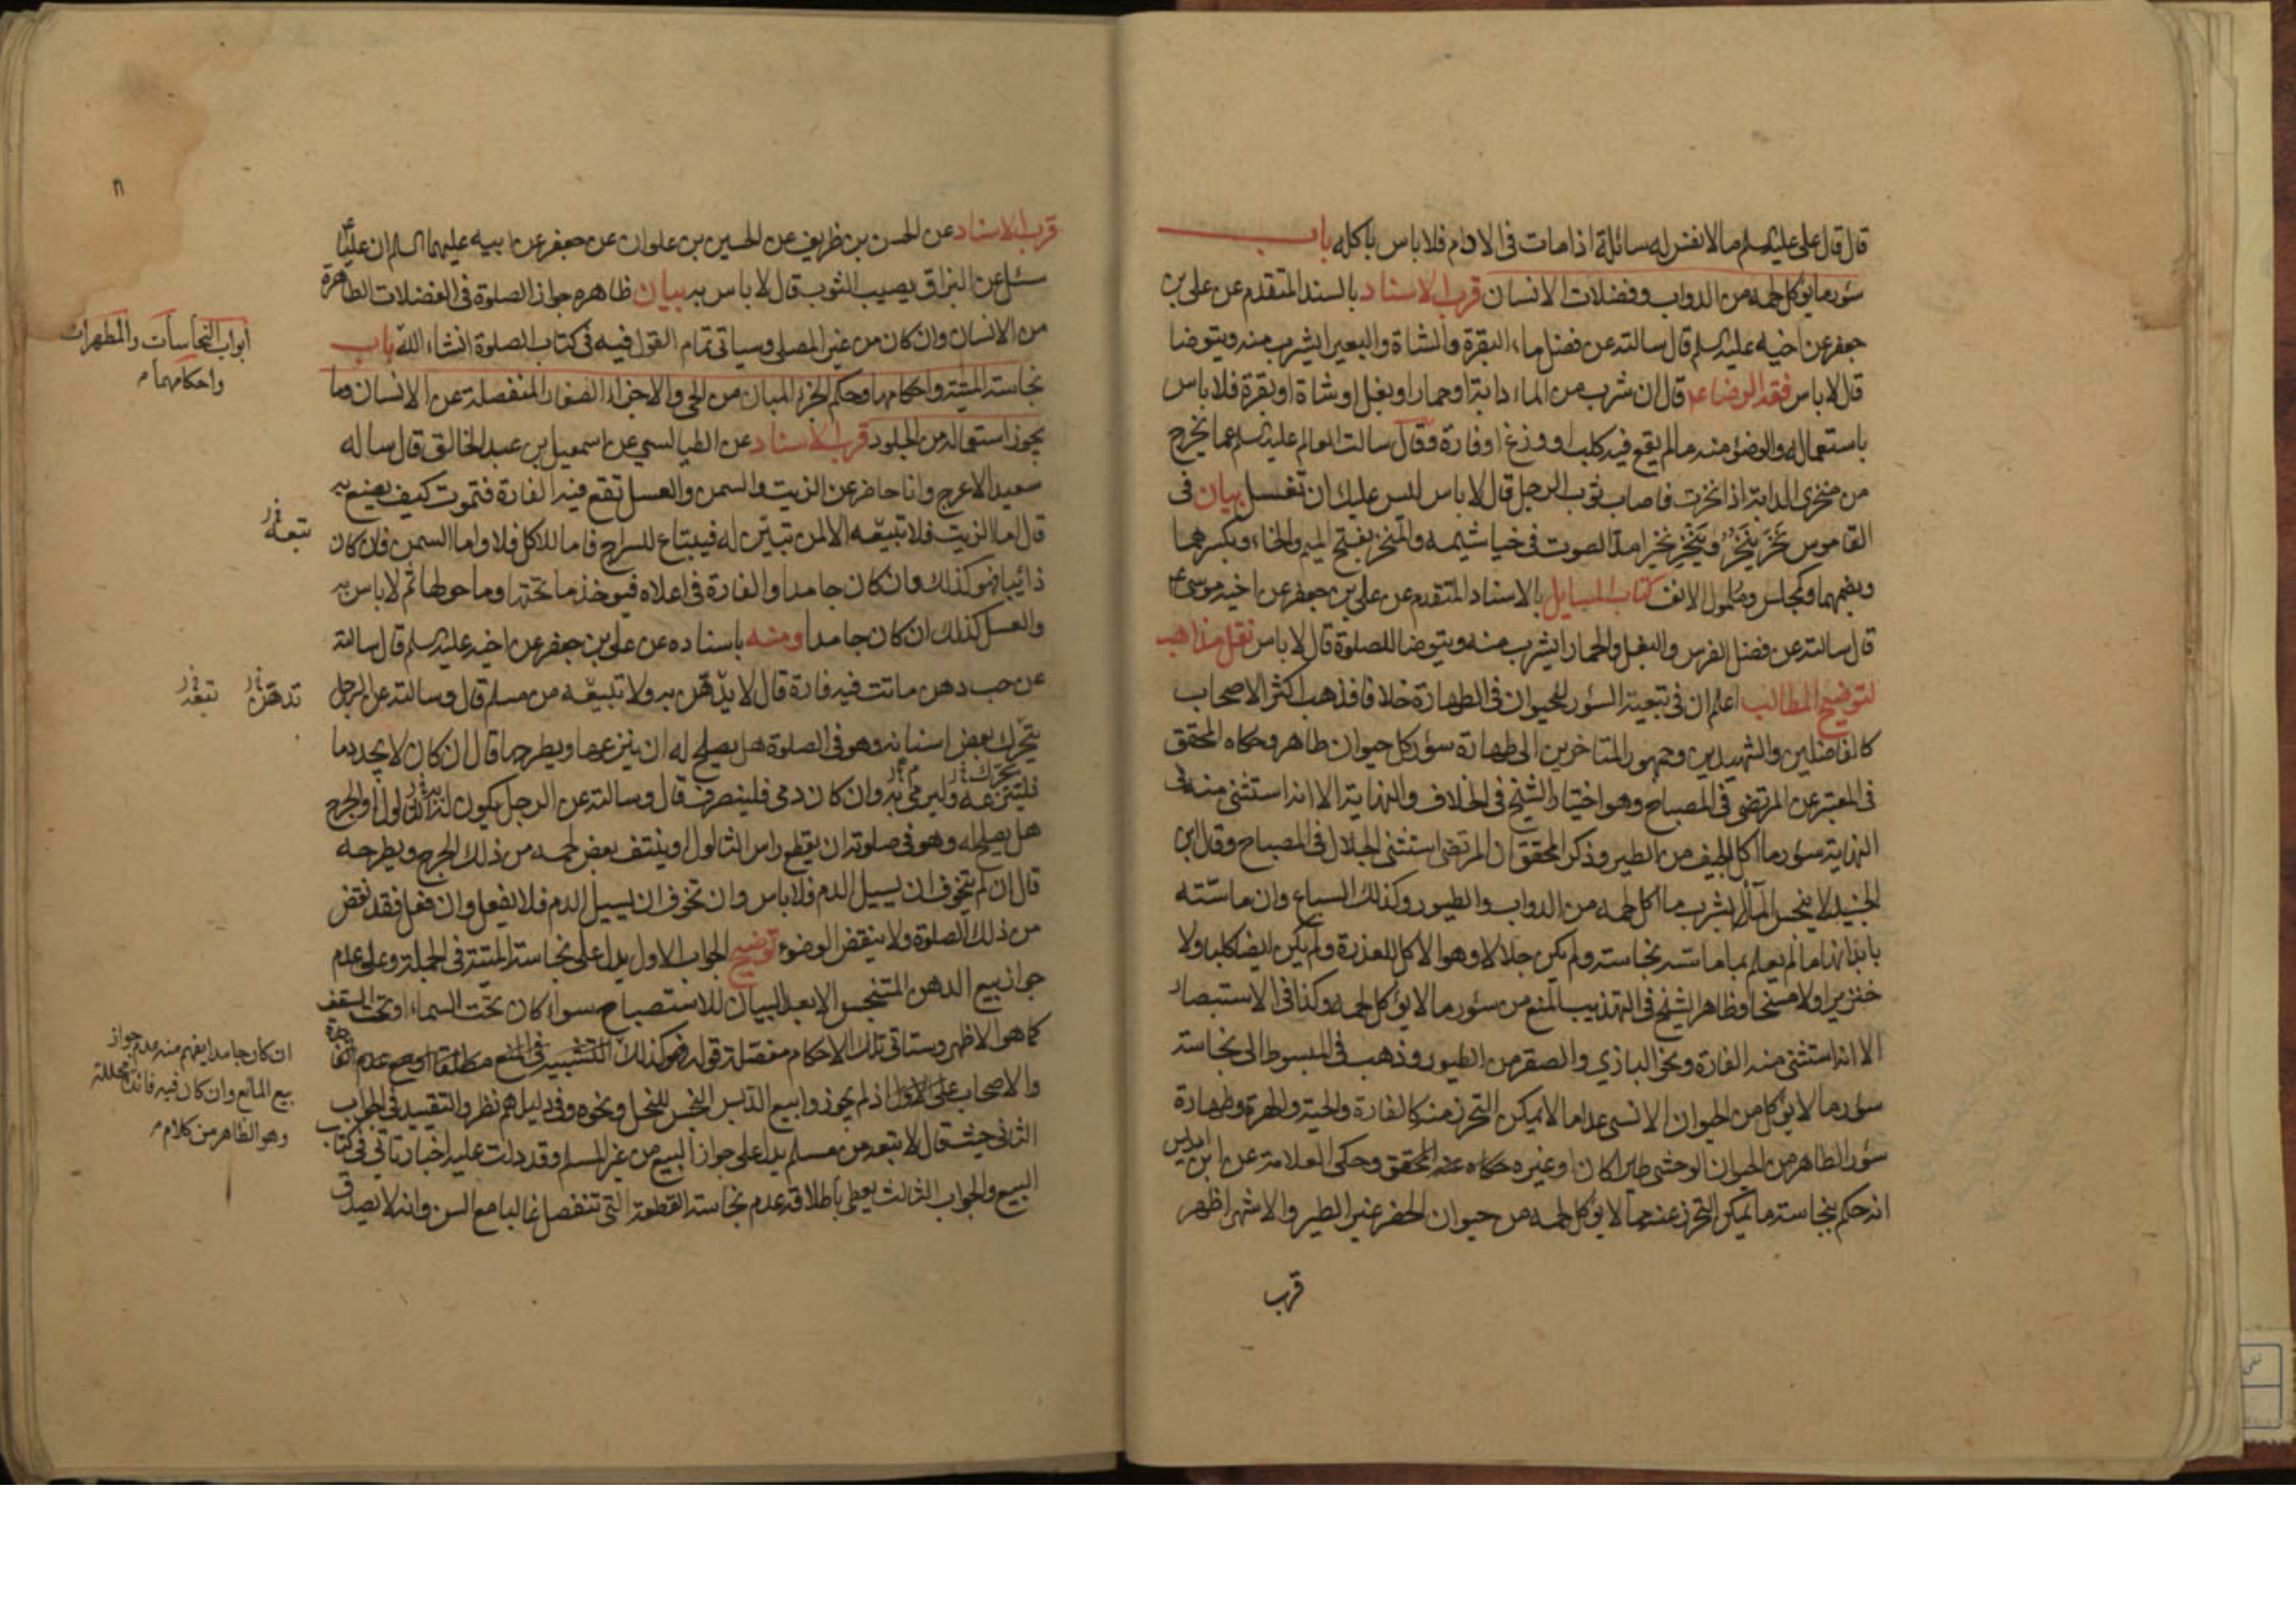 قال قال علي عليه السلم ما لا نفس له سائلة اذا مات في الادام فلا باس باكله باب
سؤر ما يؤكل لحمه من الدواب وفضلات الانسان قرب الاسناد بالسند المتقدم عن علي بن
جعفر عن اخيه عليه السلم قال سالته عن فضل ماء البقرة والشاة والبعير ايشرب منه ويتوضا
قال لا باس فقه الرضا ع قال ان شرب من الماء دابة او حمار او بغل او شاة او بقرة فلا باس
باستعماله والوضوء منه ما لم يقع فيه كلب او وزغ او فارة وقال سالت العالم عليه السلم عما يخرج
من منخري الدابة اذا نخرت فاصاب ثوب الرجل قال لا باس ليس عليك ان تغسل بيان في
القاموس نخر ينخر وينخر نخيرا مد الصوت في خياشيمه والمنخر بفتح الميم والخاء وبكسرهما
وبضمهما وكمجلس وملمول الانف كتاب المسايل بالاسناد المتقدم عن علي بن جعفر عن اخيه موسى ع
قال سالته عن فضل الفرس والبغل والحمار ايشرب منه ويتوضا للصلوة قال لا باس نقل مذاهب
لتوضيح المطالب اعلم ان في تبعية السؤر للحيوان في الطهارة خلافا فذهب اكثر الاصحاب
كالفاضلين والشهيدين وجمهور المتاخرين الى طهارة سؤر كل حيوان طاهر وحكاه المحقق
في المعتبر عن المرتضى في المصباح وهو اختيار الشيخ في الخلاف والنهاية الا انه استثنى منه في
النهاية سؤر ما اكل الجيف من الطير وذكر المحقق ان المرتضى استثنى الجلال في المصباح وقال ابن
الجنيد لا ينجس الماء بشرب ما اكل لحمه من الدواب والطيور وكذلك السباع وان ماسته
بابدانها ما لم يعلم بما ماسته نجاسة ولم يكن جلالا وهو الاكل للعذرة ولم يكن ايضا كلبا ولا
خنزيرا ولا مسخا وظاهر الشيخ في التهذيب المنع من سؤر ما لا يؤكل لحمه وكذا في الاستبصار
الا انه استثنى منه الفارة ونحو البازي والصقر من الطيور وذهب في المبسوط الى نجاسة
سؤر ما لا يؤكل من الحيوان الانسي عدا ما لا يمكن التحرز منه كالفارة والحية والهرة وطهارة
سؤر الطاهر من الحيوان الوحشي طيرا كان او غيره حكاه عنه المحقق وحكى العلامة عن ابن ادريس
انه حكم بنجاسة ما يمكن التحرز عنه مما لا يؤكل لحمه من حيوان الحضر غير الطير والاشهر اظهر
قرب
قرب الاسناد عن الحسن بن ظريف عن الحسين بن علوان عن جعفر عن ابيه عليهما السلم ان عليا ع
سئل عن البزاق يصيب الثوب قال لا باس به بيان ظاهره جواز الصلوة في الفضلات الطاهرة
من الانسان وان كان من غير المصلي وسياتي تمام القول فيه في كتاب الصلوة انشاء الله باب
ابواب النجاسات والمطهرات
واحكامهما م
نجاسة الميتة واحكامها وحكم الجزء المبان من الحي والاجزاء الصغار المنفصلة عن الانسان وما
يجوز استعماله من الجلود قرب الاسناد عن الطيالسي عن اسمعيل بن عبد الخالق قال ساله
سعيد الاعرج وانا حاضر عن الزيت والسمن والعسل تقع فيه الفارة فتموت كيف يصنع به
قال اما الزيت فلا تبيعه الا لمن تبين له فيبتاع للسراج فاما للاكل فلا واما السمن فان كان
تبعه
ذائبا فهو كذلك وان كان جامدا والفارة في اعلاه فيؤخذ ما تحتها وما حولها ثم لا باس به
والعسل كذلك ان كان جامدا ومنه باسناده عن علي بن جعفر عن اخيه عليه السلم قال سالته
عن حب دهن ماتت فيه فارة قال لا يدهن به ولا تبيعه من مسلم قال وسالته عن الرجل
تدهن تبعه
يتحرك بعض اسنانه وهو في الصلوة هل يصلح له ان ينزعها ويطرحها قال ان كان لا يجد دما
فلينزعه وليرمي به وان كان دمي فلينصرف قال وسالته عن الرجل يكون له الثالول او الجرح
هل يصلح له وهو في صلوته ان يقطع راس الثالول او ينتف بعض لحمه من ذلك الجرح ويطرحه
قال ان لم يتخوف ان يسيل الدم فلا باس وان تخوف ان يسيل الدم فلا يفعل وان فعل فقد نقض
من ذلك الصلوة ولا ينقض الوضوء توضيح الجواب الاول يدل على نجاسة الميتة في الجملة وعلى عدم
جواز بيع الدهن المتنجس الا بعد البيان للاستصباح سواء كان تحت السماء او تحت السقف
كما هو الاظهر وستاتي تلك الاحكام مفصلة قوله فهو كذلك التشبيه في المنع مطلقا او مع عدم الفائدة
ان كان جامدا يفهم منه عدم جواز
بيع المائع وان كان فيه فائدة محللة
وهو الظاهر من كلام م
والاصحاب على الاول اذ لم يجوزوا بيع الدبس النجس للنحل ونحوه وفي دليلهم نظر والتقييد في الجواب
الثاني حيث قال لا تبعه من مسلم يدل على جواز البيع من غير المسلم وقد دلت عليه اخبار تاتي في كتاب
البيع والجواب الثالث يعطي باطلاقه عدم نجاسة القطعة التي تنفصل غالبا مع السن وانه لا يصدق